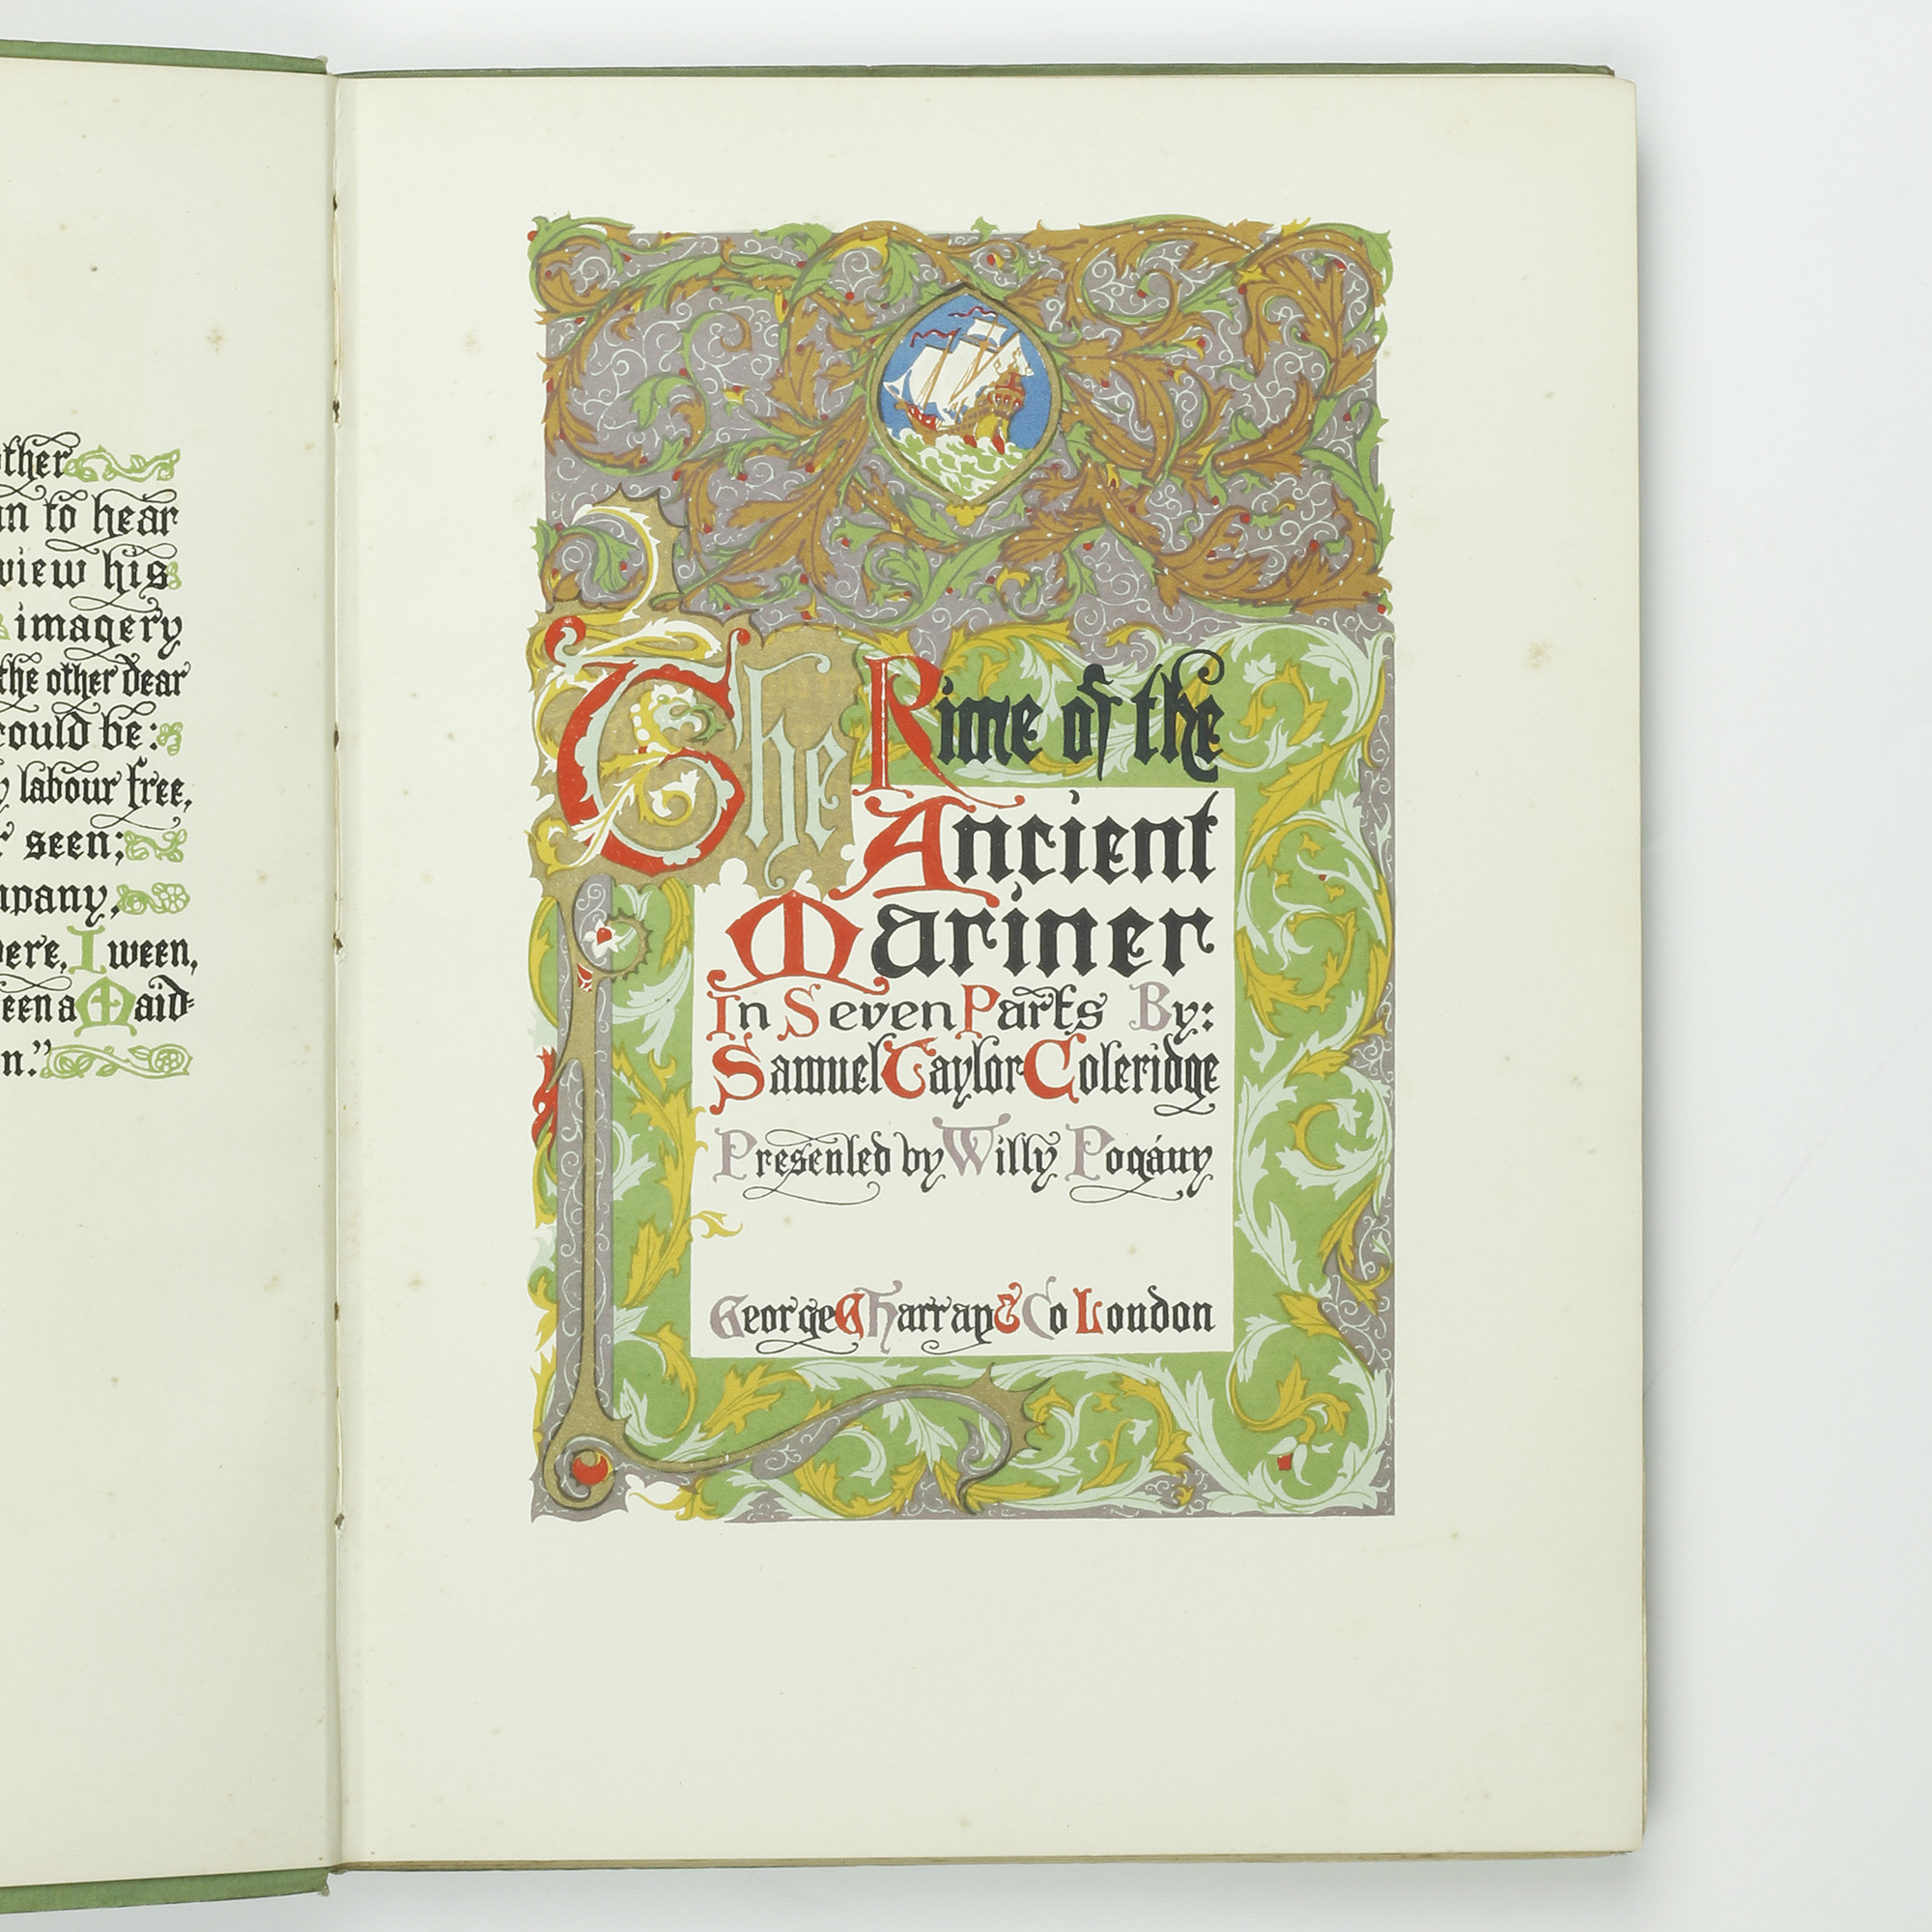 other
to hear
view his
imagery
the other dear
could be:
labour free,
seen;
ere, I ween,
een a Maid=
n."
The Rime of the
Ancient
Mariner
In Seven Parts By:
Samuel Taylor Coleridge
Presented by Willy Pogány
George G Harrap & Co London